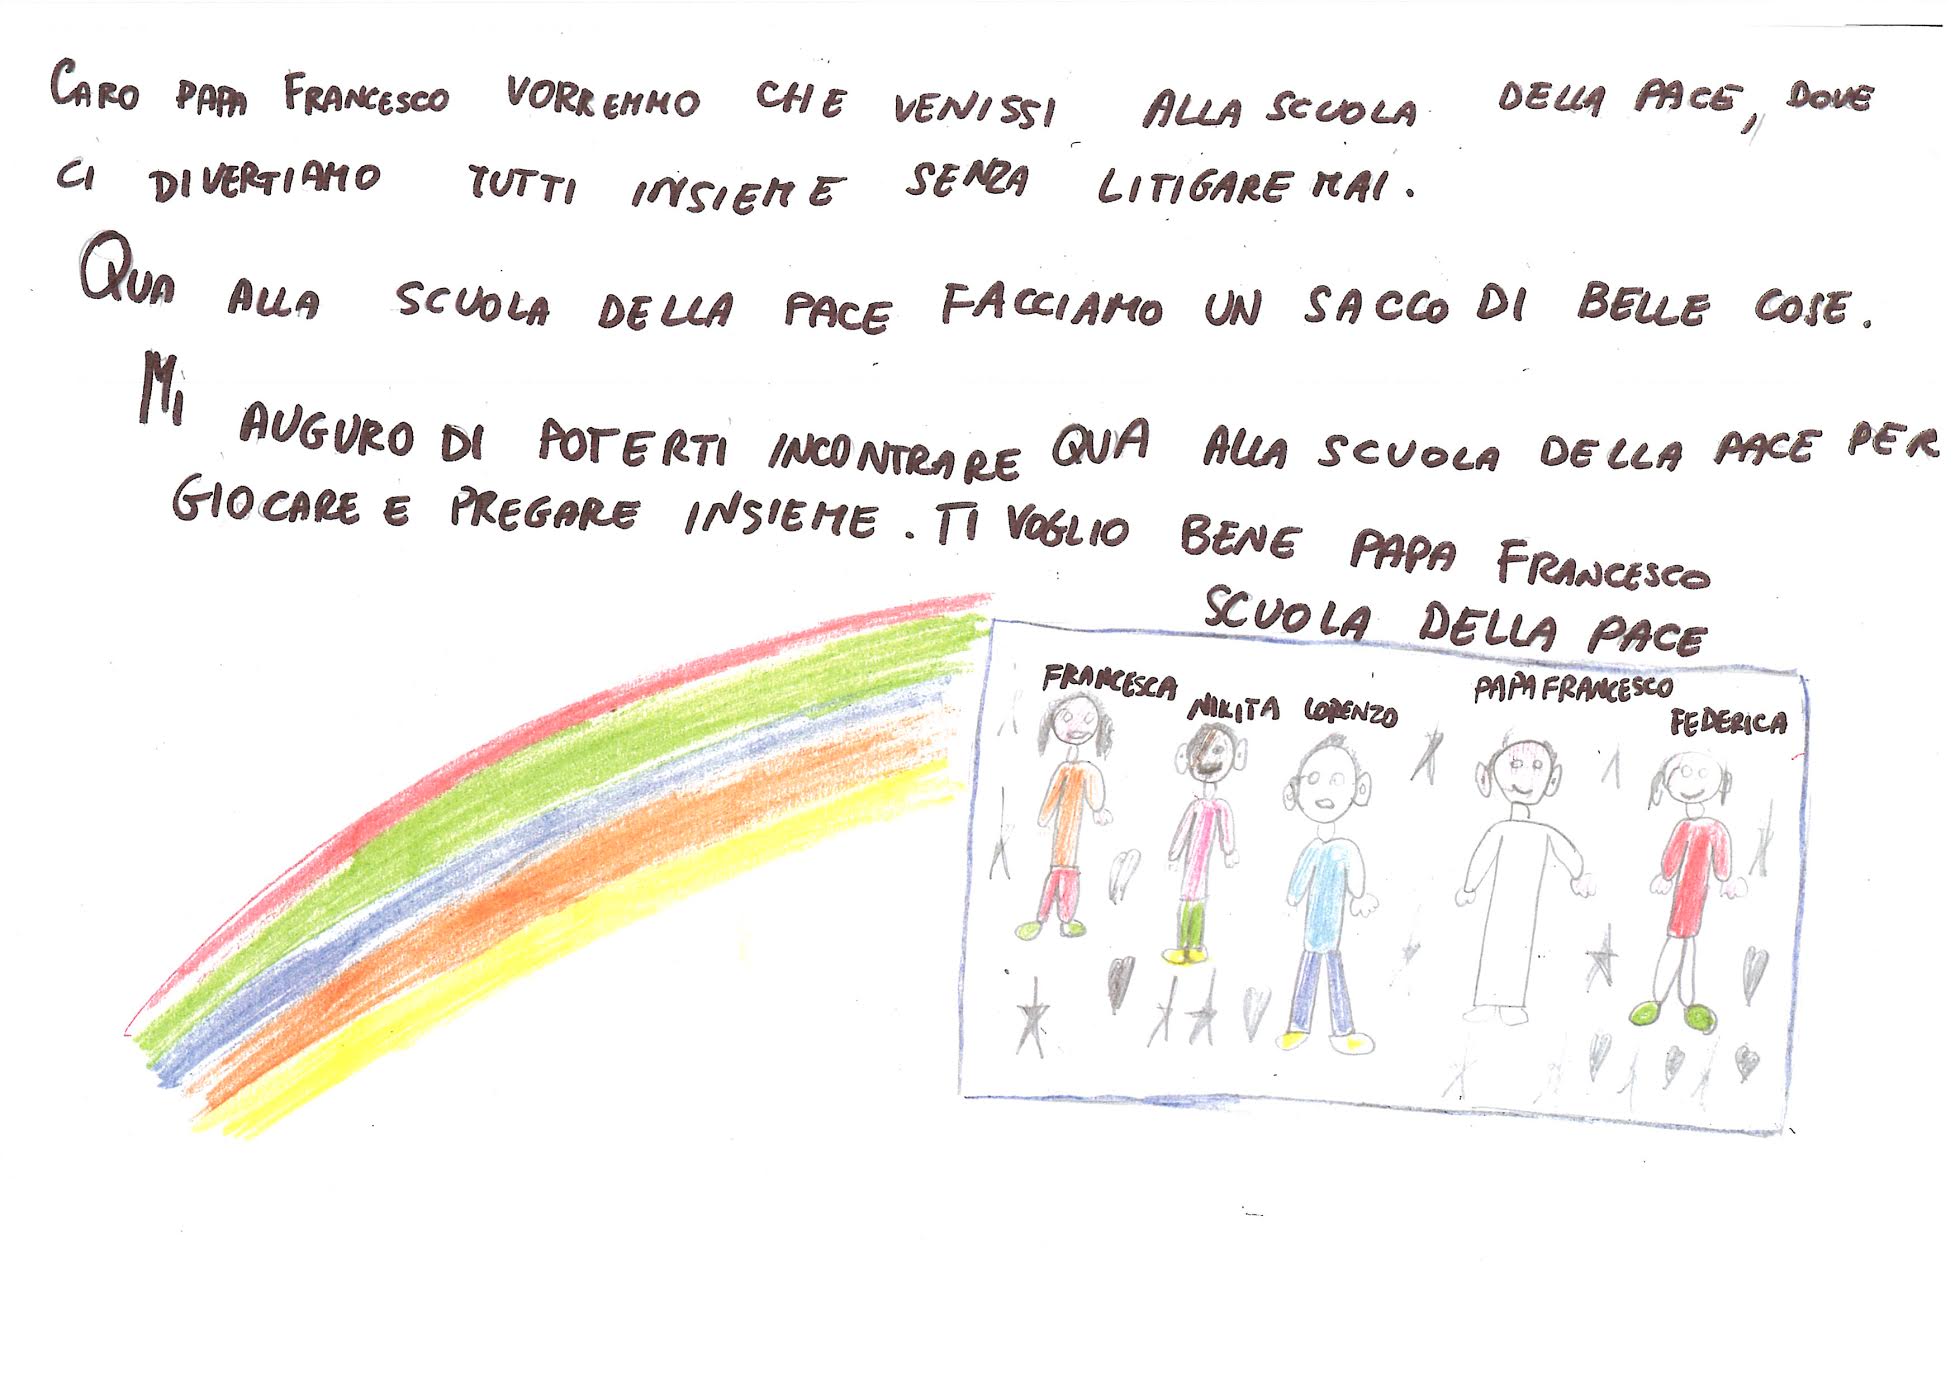 CARO PAPA FRANCESCO VORREMMO CHE VENISSI ALLA SCUOLA DELLA PACE, DOVE
CI DIVERTIAMO TUTTI INSIEME SENZA LITIGARE MAI.
QUA ALLA SCUOLA DELLA PACE FACCIAMO UN SACCO DI BELLE COSE.
MI AUGURO DI POTERTI INCONTRARE QUA ALLA SCUOLA DELLA PACE PER
GIOCARE E PREGARE INSIEME. TI VOGLIO BENE PAPA FRANCESCO
SCUOLA DELLA PACE
FRANCESCA NIKITA LORENZO PAPA FRANCESCO FEDERICA